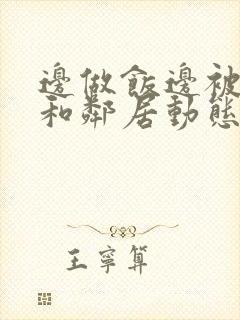 邊做飯邊被
和鄰居動態
王寧算